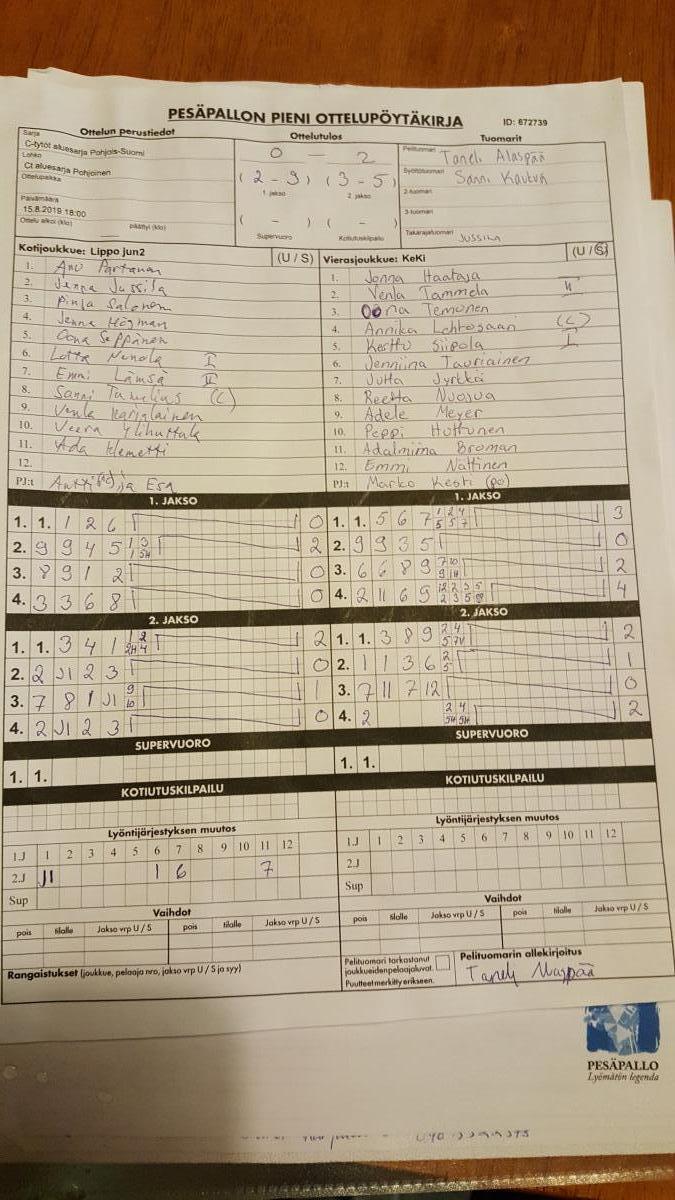 PESÄPALLON PIENI OTTELUPÖYTÄKIRJA ID: 672739
Ottelun perustiedot Ottelutulos Tuomarit
Sarja
C-tytöt aluesarja Pohjois-Suomi
Lohko
Ct aluesarja Pohjoinen
Ottelupaikka
Päivämäärä
15.8.2019 18:00
Ottelu alkoi (klo) päättyi (klo)
0 — 2
(2 - 9) (3 - 5)
1. jakso 2. jakso
( - ) ( - )
Supervuoro Kotiutuskilpailu
Pelituomari Taneli Alaspää
Syöttötuomari Sanni
2-tuomari
3-tuomari
Takarajatuomari JUSSILA
Kotijoukkue: Lippo jun2 (U / S)
1. Anu Partanen
2. Jenna Jussila
3. Pinja Salonen
4. Jenna
5. Oona Seppänen
6. Lotta I
7. Emmi Lämsä II
8. Sanni (C)
9. Venla Karjalainen
10. Veera Ylihuttula
11. Ada Klemetti
12.
PJ:t Antti ja Esa
Vierasjoukkue: KeKi (U / S)
1. Jonna Haataja
2. Venla Tammela II
3. Oona Temonen
4. Annika Lehtosaari (C)
5. Kerttu Siipola I
6. Jenniina Tauriainen
7. Jutta Jyrkkä
8. Reetta Nuojua
9. Adele Meyer
10. Peppi Huttunen
11. Adalmiina Broman
12. Emmi Nättinen
PJ:t Marko Kesti
1. JAKSO 1. JAKSO
1. 1. 1 2 6 0 1. 1. 5 6 7 3
2. 9 9 4 5 2 2. 9 9 3 5 0
3. 8 9 1 2 0 3. 6 6 8 9 2
4. 3 3 6 8 0 4. 2 11 6 9 4
2. JAKSO 2. JAKSO
1. 1. 3 4 1 2 1. 1. 3 8 9 2
2. 2 J1 2 3 0 2. 1 1 3 6 1
3. 7 8 1 J1 1 3. 7 11 7 12 0
4. 2 J1 2 3 0 4. 2 2
SUPERVUORO SUPERVUORO
1. 1. 1. 1.
KOTIUTUSKILPAILU KOTIUTUSKILPAILU
Lyöntijärjestyksen muutos Lyöntijärjestyksen muutos
1.J 1 2 3 4 5 6 7 8 9 10 11 12
2.J J1 1 6 7
Sup
1.J 1 2 3 4 5 6 7 8 9 10 11 12
2.J
Sup
Vaihdot Vaihdot
pois tilalle Jakso vrp U / S pois tilalle Jakso vrp U / S
pois tilalle Jakso vrp U / S pois tilalle Jakso vrp U / S
Rangaistukset (joukkue, pelaaja nro, jakso vrp U / S ja syy)
Pelituomari tarkastanut
joukkueidenpelaajaluvat.
Puutteet merkitty erikseen.
Pelituomarin allekirjoitus
Taneli Alaspää
PESÄPALLO
Lyömätön legenda